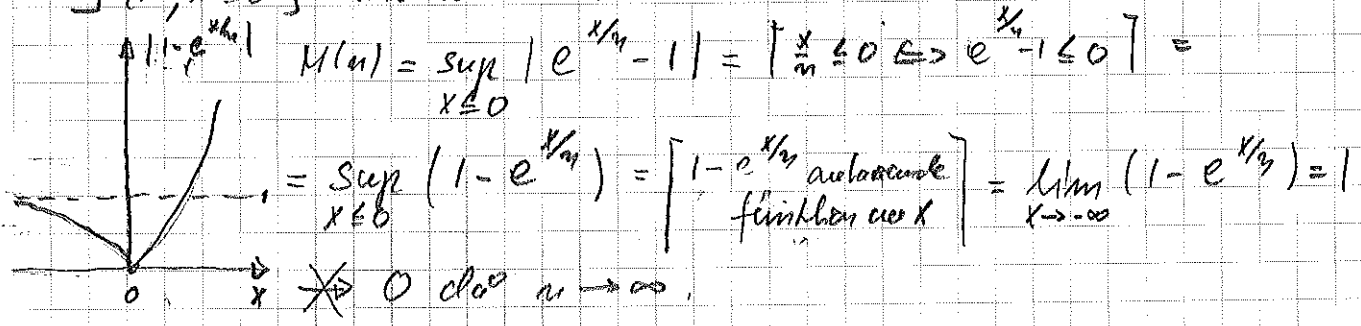 |1-e^{x/n}|
M(n) = sup_{x≤0} | e^{x/n} - 1 | = ⌈ x/n ≤ 0 ⇔ e^{x/n} - 1 ≤ 0 ⌉ =
1 = sup_{x≤0} (1 - e^{x/n}) = [ 1 - e^{x/n} avtagande funktion av x ] = lim_{x→-∞} (1 - e^{x/n}) = 1
0 x ↛ 0 då n → ∞.